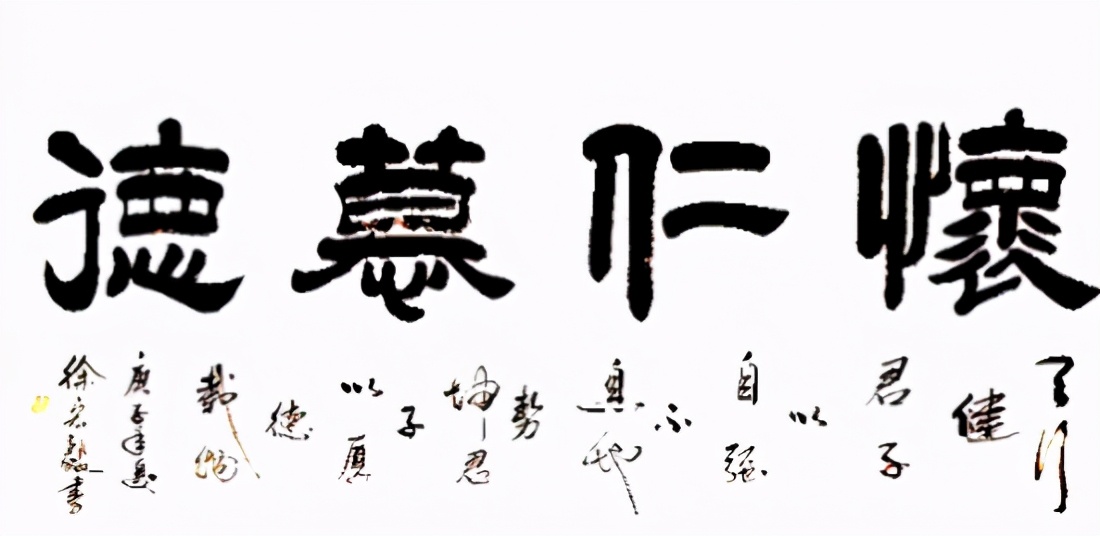 懷仁慕德
天行
健
君子
以
自強
不
息也
勢
坤君
子
以厚
德
載物
庚子年夏
徐宏書